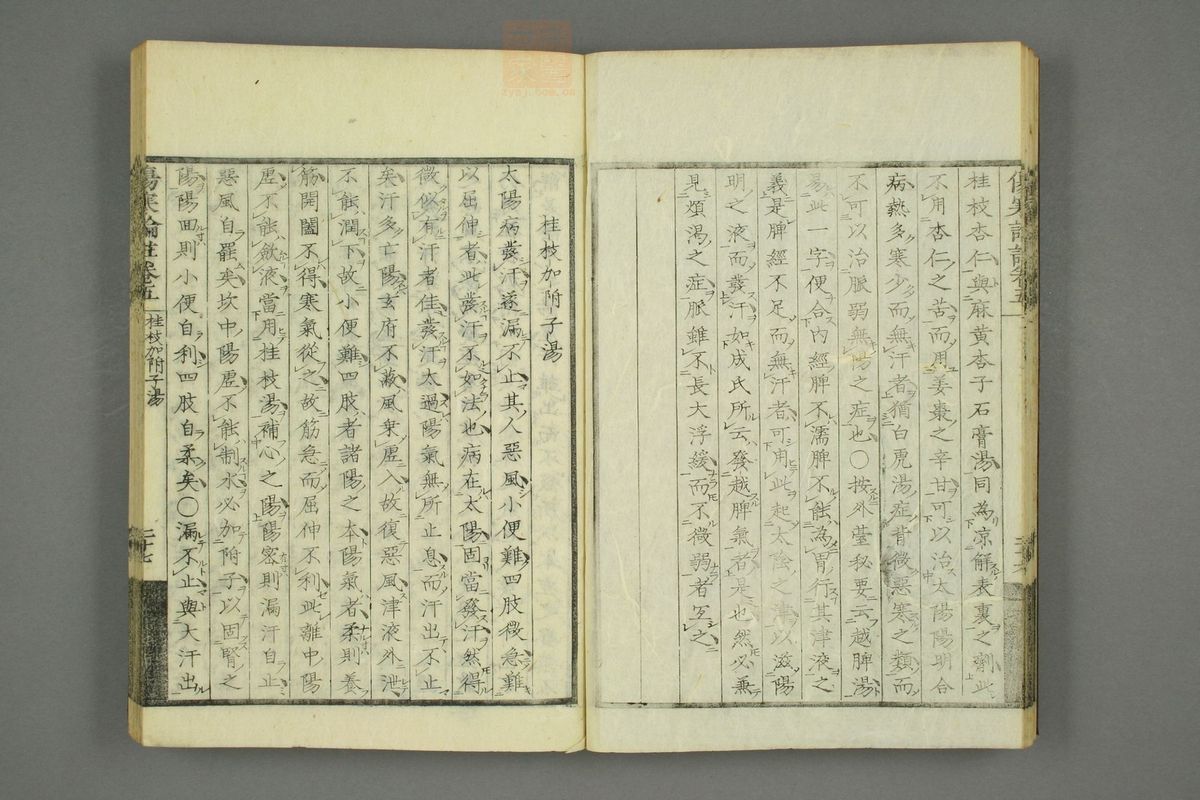 桂枝杏仁與麻黄杏子石膏湯同為凉解表裏之劑此
不用杏仁之苦而用姜棗之辛甘可以治太陽陽明合
病熱多寒少而無汗者猶白虎湯症背微惡寒之類而
不可以治脈弱無陽之症也〇按外臺秘要云越脾湯
易此一字便合内經脾不濡脾不能為胃行其津液之
義是脾經不足而無汗者可用此起太陰之津以滋陽
明之液而發汗如成氏所云發越脾氣者是也然必兼
見煩渴之症脈雖不長大浮緩而不微弱者宜之
桂枝加附子湯
太陽病發汗遂漏不止其人惡風小便難四肢微急難
以屈伸者此發汗不如法也病在太陽固當發汗然得
微似有汗者佳發汗太過陽氣無所止息而汗出不止
矣汗多亡陽玄府不蔽風乘虚入故復惡風津液外泄
不能潤下故小便難四肢者諸陽之本陽氣者柔則養
筋開闔不得寒氣從之故筋急而屈伸不利此離中陽
虚不能斂液當用桂枝湯補心之陽陽密則漏汗自止
惡風自罷矣坎中陽虚不能制水必加附子以固腎之
陽陽囬則小便自利四肢自柔矣〇漏不止與大汗出
傷寒論註卷五
桂枝加附子湯
二十七